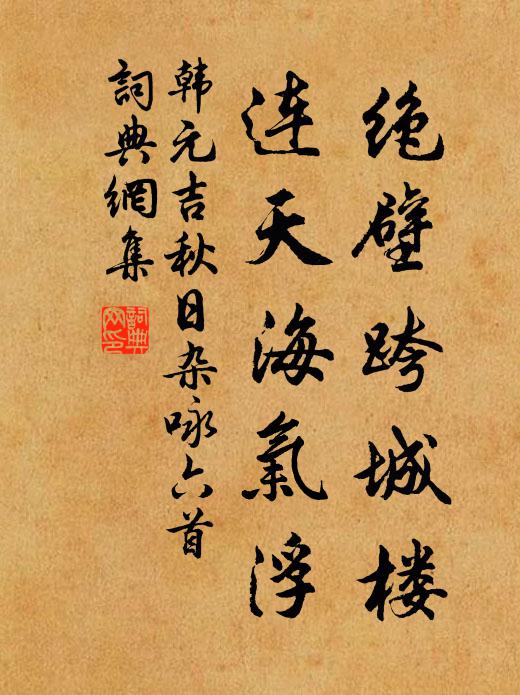 绝壁跨城楼
连天海氣浮
韩元吉秋日杂咏六首
詞典網集
詞典網印